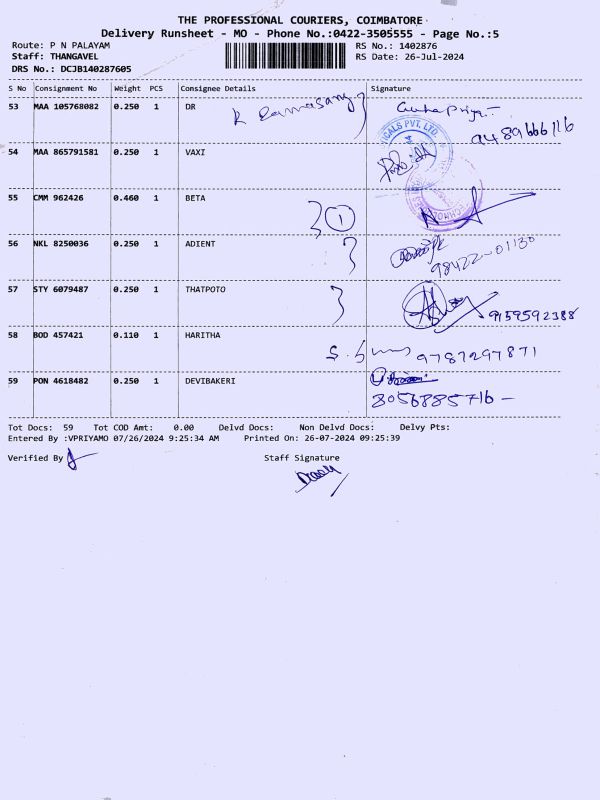 THE PROFESSIONAL COURIERS, COIMBATORE
Delivery Runsheet - MO - Phone No.:0422-3505555 - Page No.:5
Route: P N PALAYAM RS No.: 1402876
Staff: THANGAVEL RS Date: 26-Jul-2024
DRS No.: DCJB140287605
S No Consignment No Weight PCS Consignee Details Signature
53 MAA 105768082 0.250 1 DR
9489666116
54 MAA 865791581 0.250 1 VAXI
ICALS PVT. LTD.
55 CMM 962426 0.460 1 BETA
1
56 NKL 8250036 0.250 1 ADIENT
98422-01130
57 STY 6079487 0.250 1 THATPOTO
9159592388
58 BOD 457421 0.110 1 HARITHA
9787297871
59 PON 4618482 0.250 1 DEVIBAKERI
8056885716 -
Tot Docs: 59 Tot COD Amt: 0.00 Delvd Docs: Non Delvd Docs: Delvy Pts:
Entered By :VPRIYAMO 07/26/2024 9:25:34 AM Printed On: 26-07-2024 09:25:39
Verified By Staff Signature